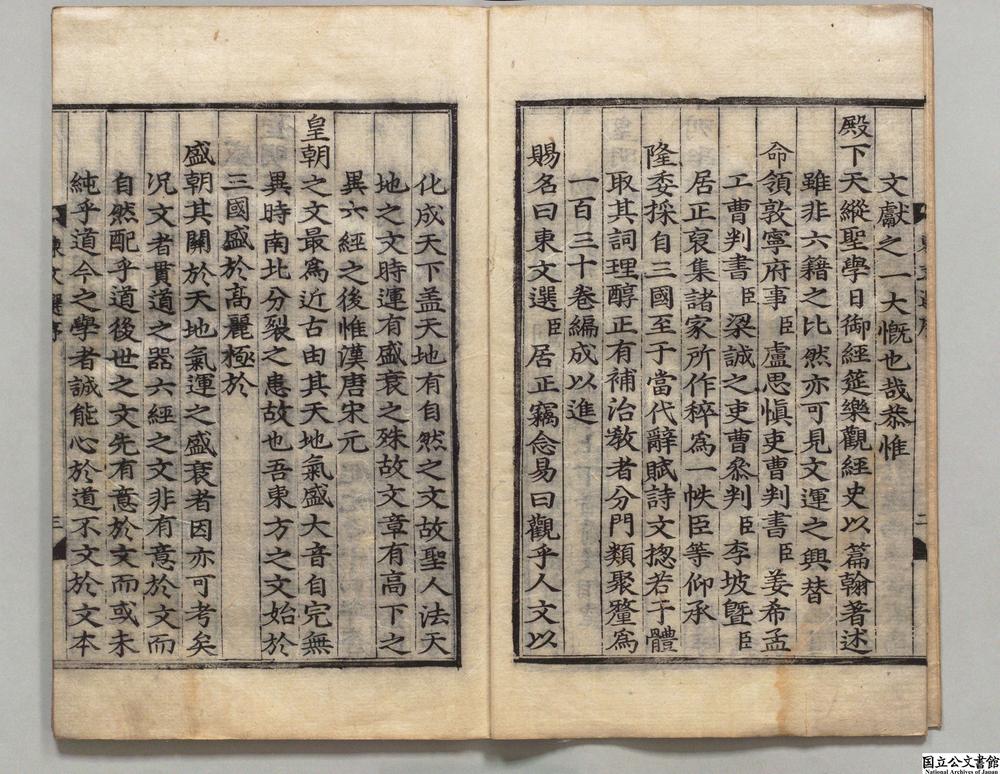 文獻之一大慨也哉恭惟
殿下天縱聖學日御經筵樂觀經史以篇翰著述
雖非六籍之比然亦可見文運之興替
命領敦寧府事臣盧思愼吏曹判書臣姜希孟
工曹判書臣梁誠之吏曹叅判臣李坡曁臣
居正裒集諸家所作稡爲一帙臣等仰承
隆委採自三國至于當代辭賦詩文揔若干體
取其詞理醇正有補治敎者分門類聚釐爲
一百三十卷編成以進
賜名曰東文選臣居正竊念易曰觀乎人文以
化成天下盖天地有自然之文故聖人法天
地之文時運有盛衰之殊故文章有高下之
異六經之後惟漢唐宋元
皇朝之文最爲近古由其天地氣盛大音自完無
異時南北分裂之患故也吾東方之文始於
三國盛於高麗極於
盛朝其關於天地氣運之盛衰者因亦可考矣
况文者貫道之器六經之文非有意於文而
自然配乎道後世之文先有意於文而或未
純乎道今之學者誠能心於道不文於文本
東文選序
三
国立公文書館
National Archives of Japan